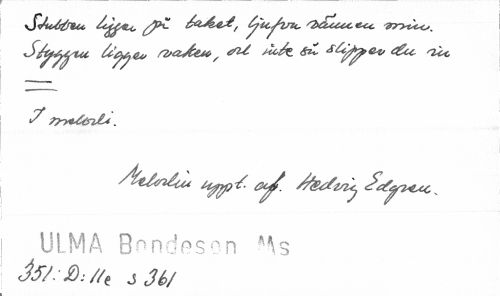 Stubben ligger på taket, ljufva vännen min.
Styggen ligger vaken, och inte så slipper du in
I melodi.
Melodin uppt. af. Hedvig Edgren.
ULMA Bondeson Ms
351: D: 11e s 361